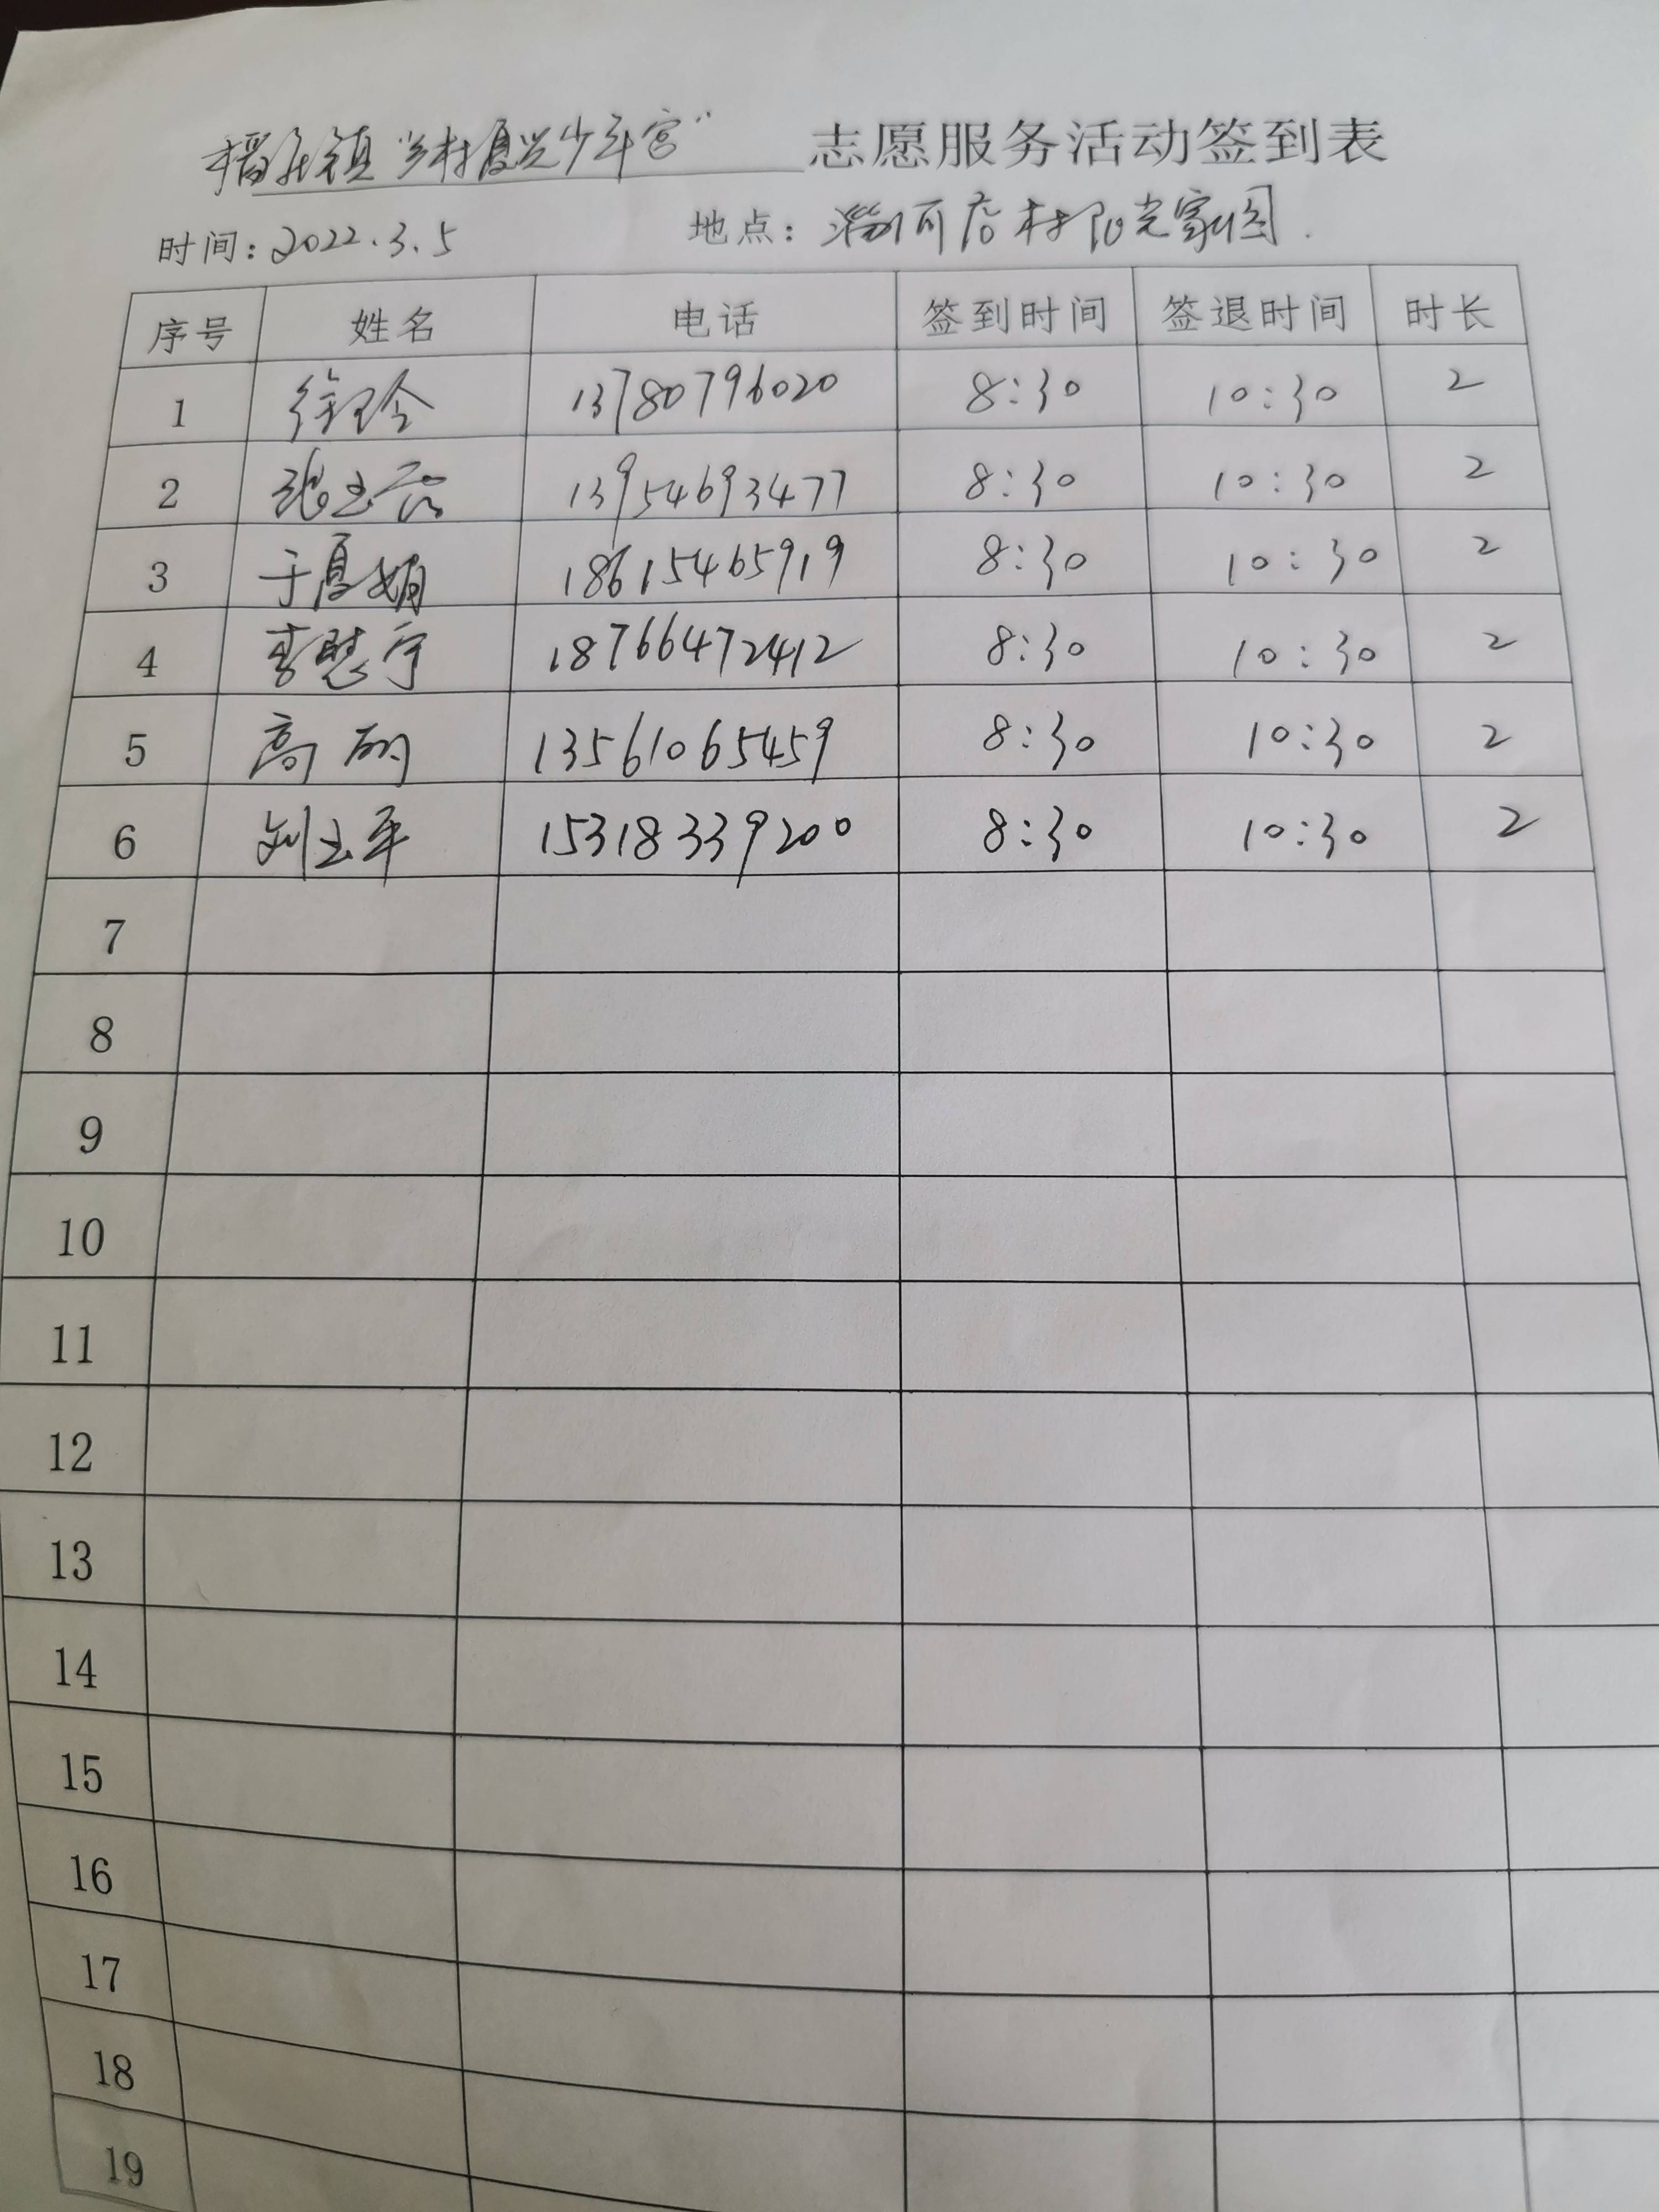 稻庄镇“乡村复兴少年宫” 志愿服务活动签到表
时间：2022.3.5 地点：淄河店村阳光家园.
序号 姓名 电话 签到时间 签退时间 时长
1 徐玲 13780796020 8:30 10:30 2
2 13954693477 8:30 10:30 2
3 于夏娟 18615465919 8:30 10:30 2
4 李慧宁 18766472412 8:30 10:30 2
5 高 13561065459 8:30 10:30 2
6 刘玉平 15318339200 8:30 10:30 2
7
8
9
10
11
12
13
14
15
16
17
18
19